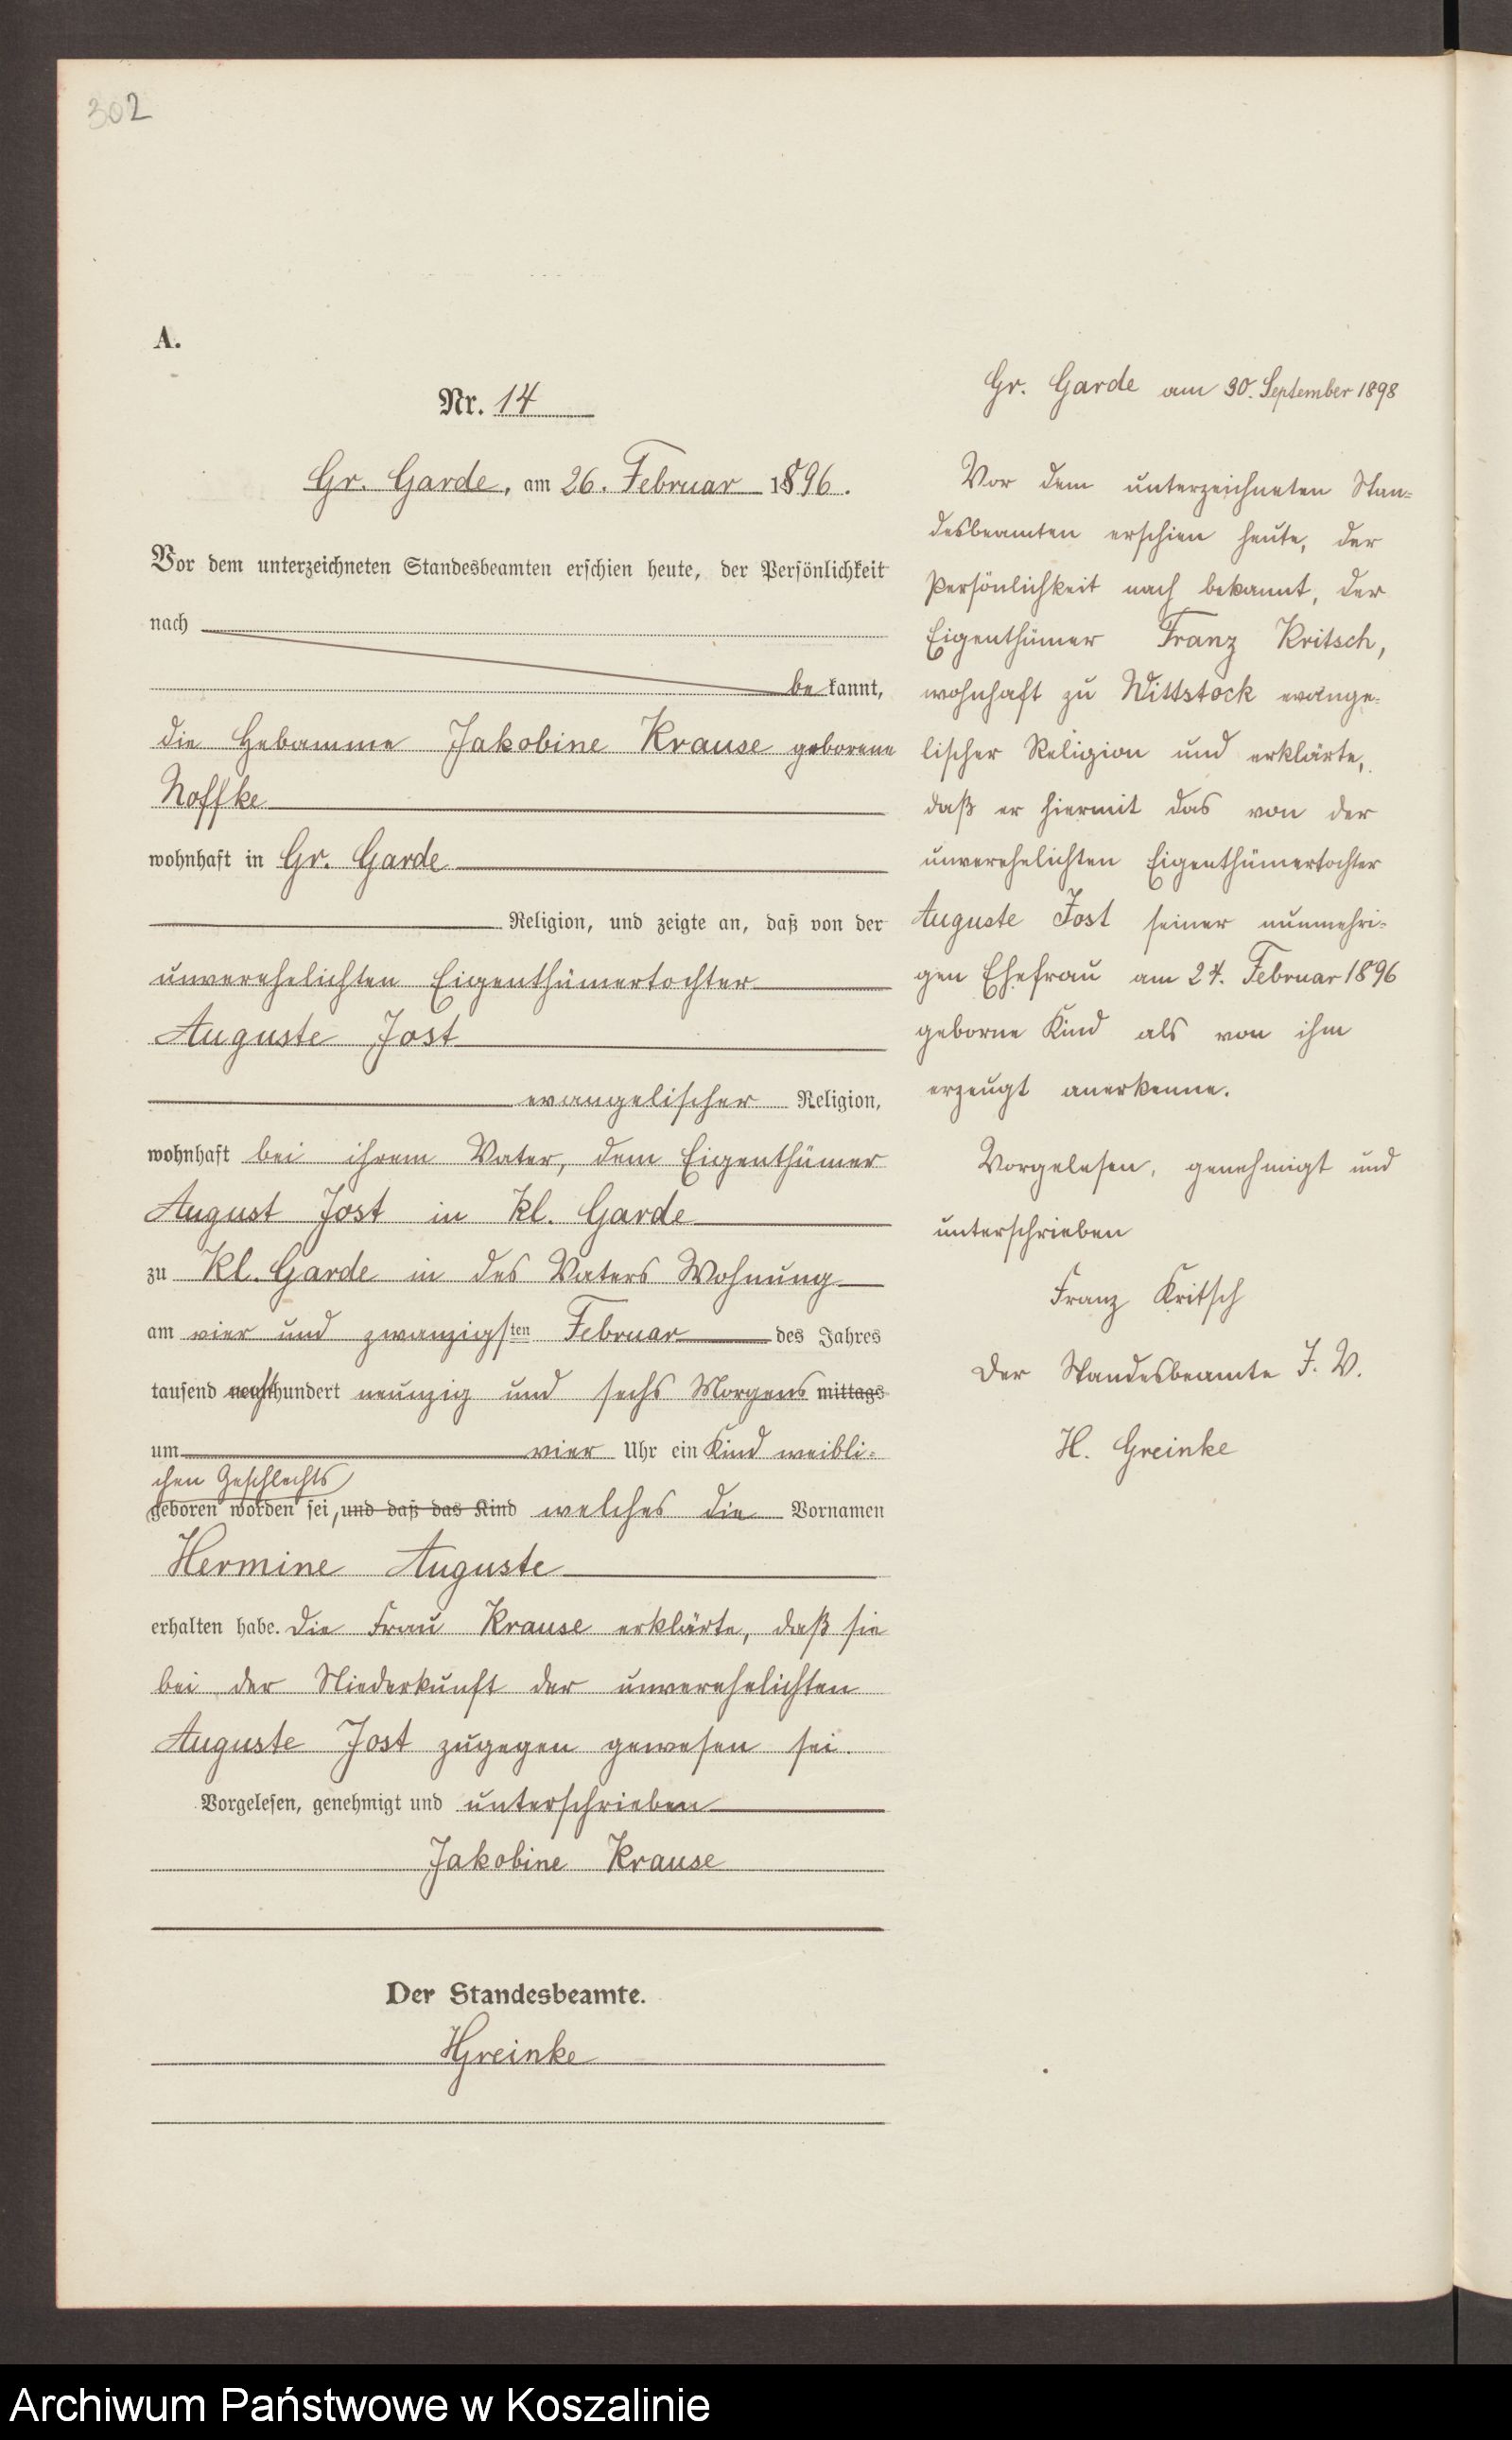 302
A.
Nr. 14
Gr. Garde, am 26. Februar 1896.
Vor dem unterzeichneten Standesbeamten erschien heute, der Persönlichkeit
nach
be kannt,
die Hebamme Jakobine Krause geborene
Noffke
wohnhaft in Gr. Garde
Religion, und zeigte an, daß von der
unverehelichten Eigenthümertochter
Auguste Jost
evangelischer Religion,
wohnhaft bei ihrem Vater, dem Eigenthümer
August Jost in Kl. Garde
zu Kl. Garde in des Vaters Wohnung
am vier und zwanzigsten Februar des Jahres
tausend achthundert neunzig und sechs Morgens mittags
um vier Uhr ein Kind weibli-
chen Geschlechts
geboren worden sei, und daß das Kind welches die Vornamen
Hermine Auguste
erhalten habe. Die Frau Krause erklärte, daß sie
bei der Niederkunft der unverehelichten
Auguste Jost zugegen gewesen sei.
Vorgelesen, genehmigt und unterschrieben
Jakobine Krause
Der Standesbeamte.
HGreinke
Gr. Garde am 30. September 1898
Vor dem unterzeichneten Stan-
desbeamten erschien heute, der
Persönlichkeit nach bekannt, der
Eigenthümer Franz Kritsch,
wohnhaft zu Wittstock evange-
lischer Religion und erklärte,
daß er hiermit das von der
unverehelichten Eigenthümertochter
Auguste Jost seiner nunmehri-
gen Ehefrau am 24. Februar 1896
geborne Kind als von ihm
erzeugt anerkenne.
Vorgelesen, genehmigt und
unterschrieben
Franz Kritsch
Der Standesbeamte J. V.
H. Greinke
Archiwum Państwowe w Koszalinie